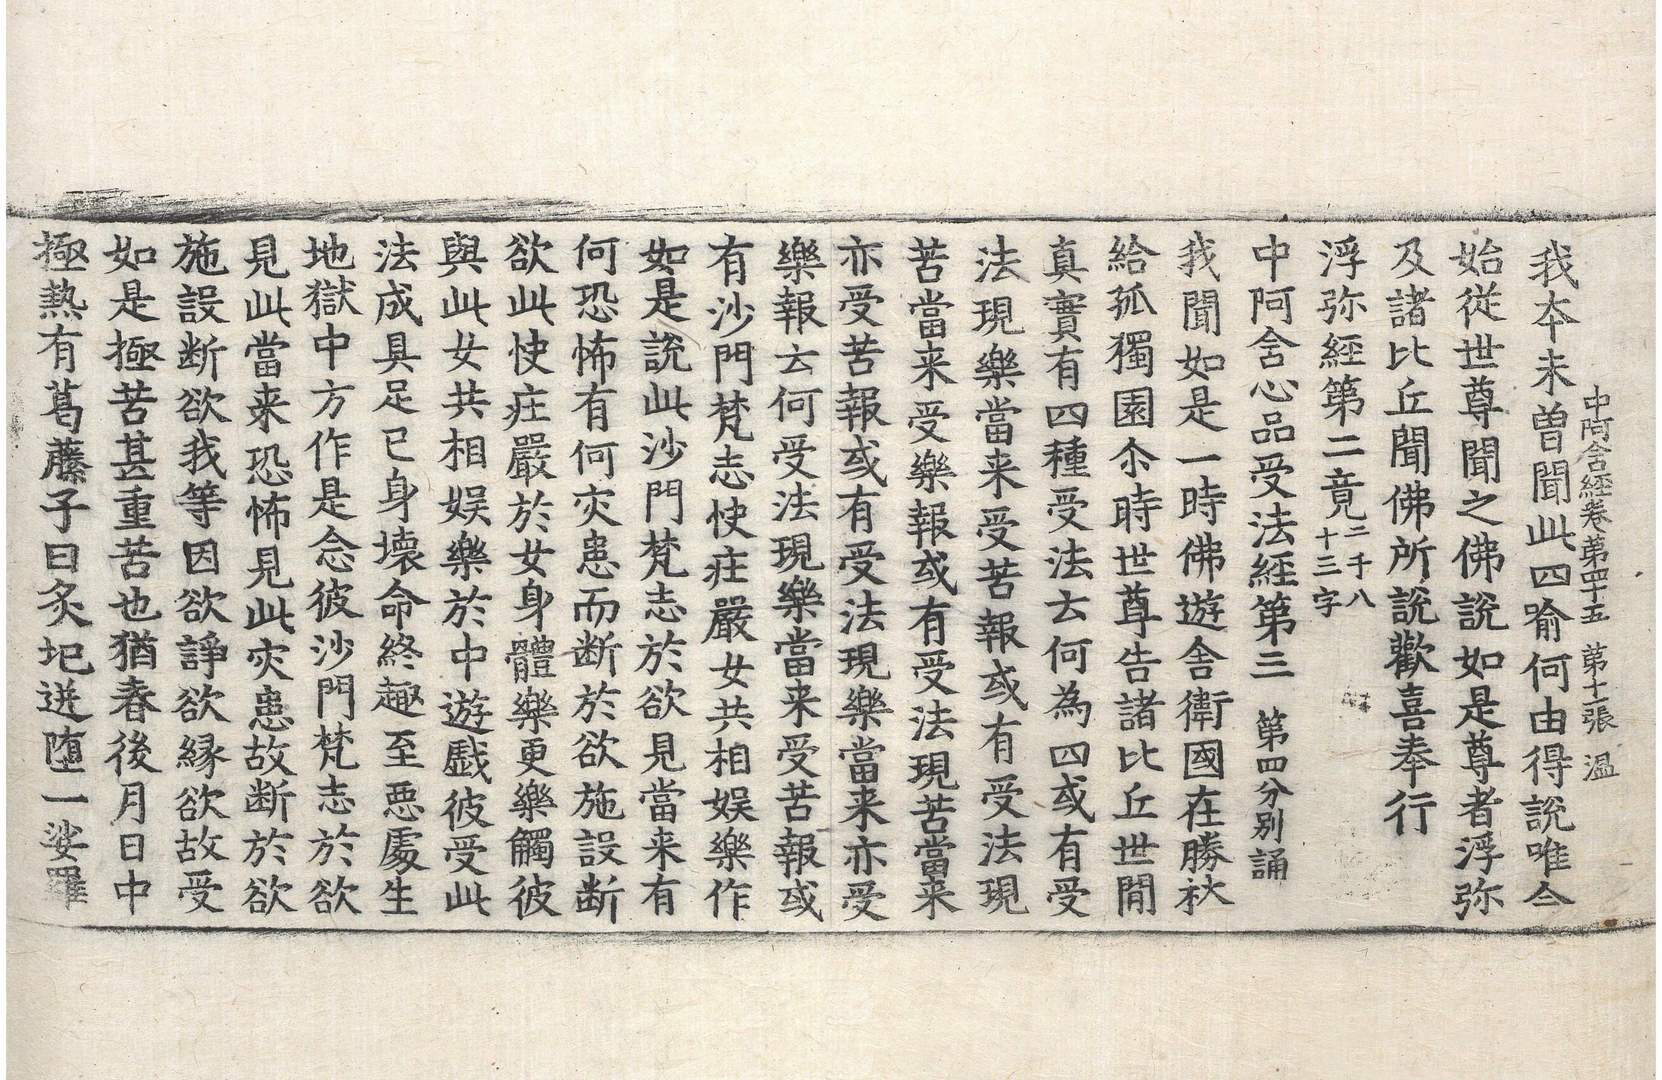 中阿含經卷第四十五 第十一張 溫
我本未曽聞此四喻何由得說唯今
始從世尊聞之佛說如是尊者浮弥
及諸比丘聞佛所說歡喜奉行
浮弥經第二竟二千八十三字
中阿含心品受法經第三 第四分別誦
我聞如是一時佛遊舍衛國在勝秋
給孤獨園尒時世尊告諸比丘世間
真實有四種受法云何為四或有受
法現樂當来受苦報或有受法現
苦當来受樂報或有受法現苦當来
亦受苦報或有受法現樂當来亦受
樂報云何受法現樂當来受苦報或
有沙門梵志快疘嚴女共相娱樂作
如是說此沙門梵志於欲見當来有
何恐怖有何灾患而断於欲施設断
欲此快疘嚴於女身體樂更樂觸彼
與此女共相娱樂於中遊戲彼受此
法成具足已身壊命終趣至惡處生
地獄中方作是念彼沙門梵志於欲
見此當来恐怖見此灾患故断於欲
施設断欲我等因欲諍欲縁欲故受
如是極苦甚重苦也猶春後月日中
極熱有葛藤子日炙圯迸墮一娑羅